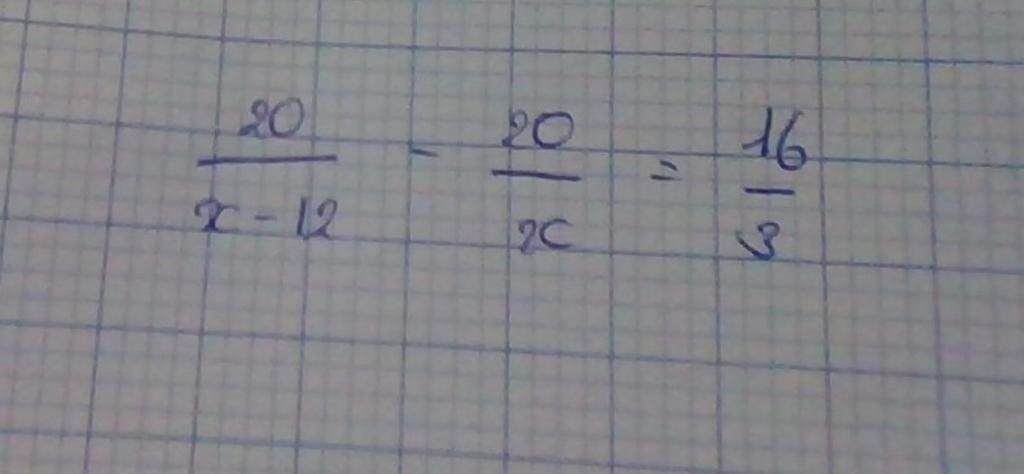 20/(x-12) - 20/x = 16/3